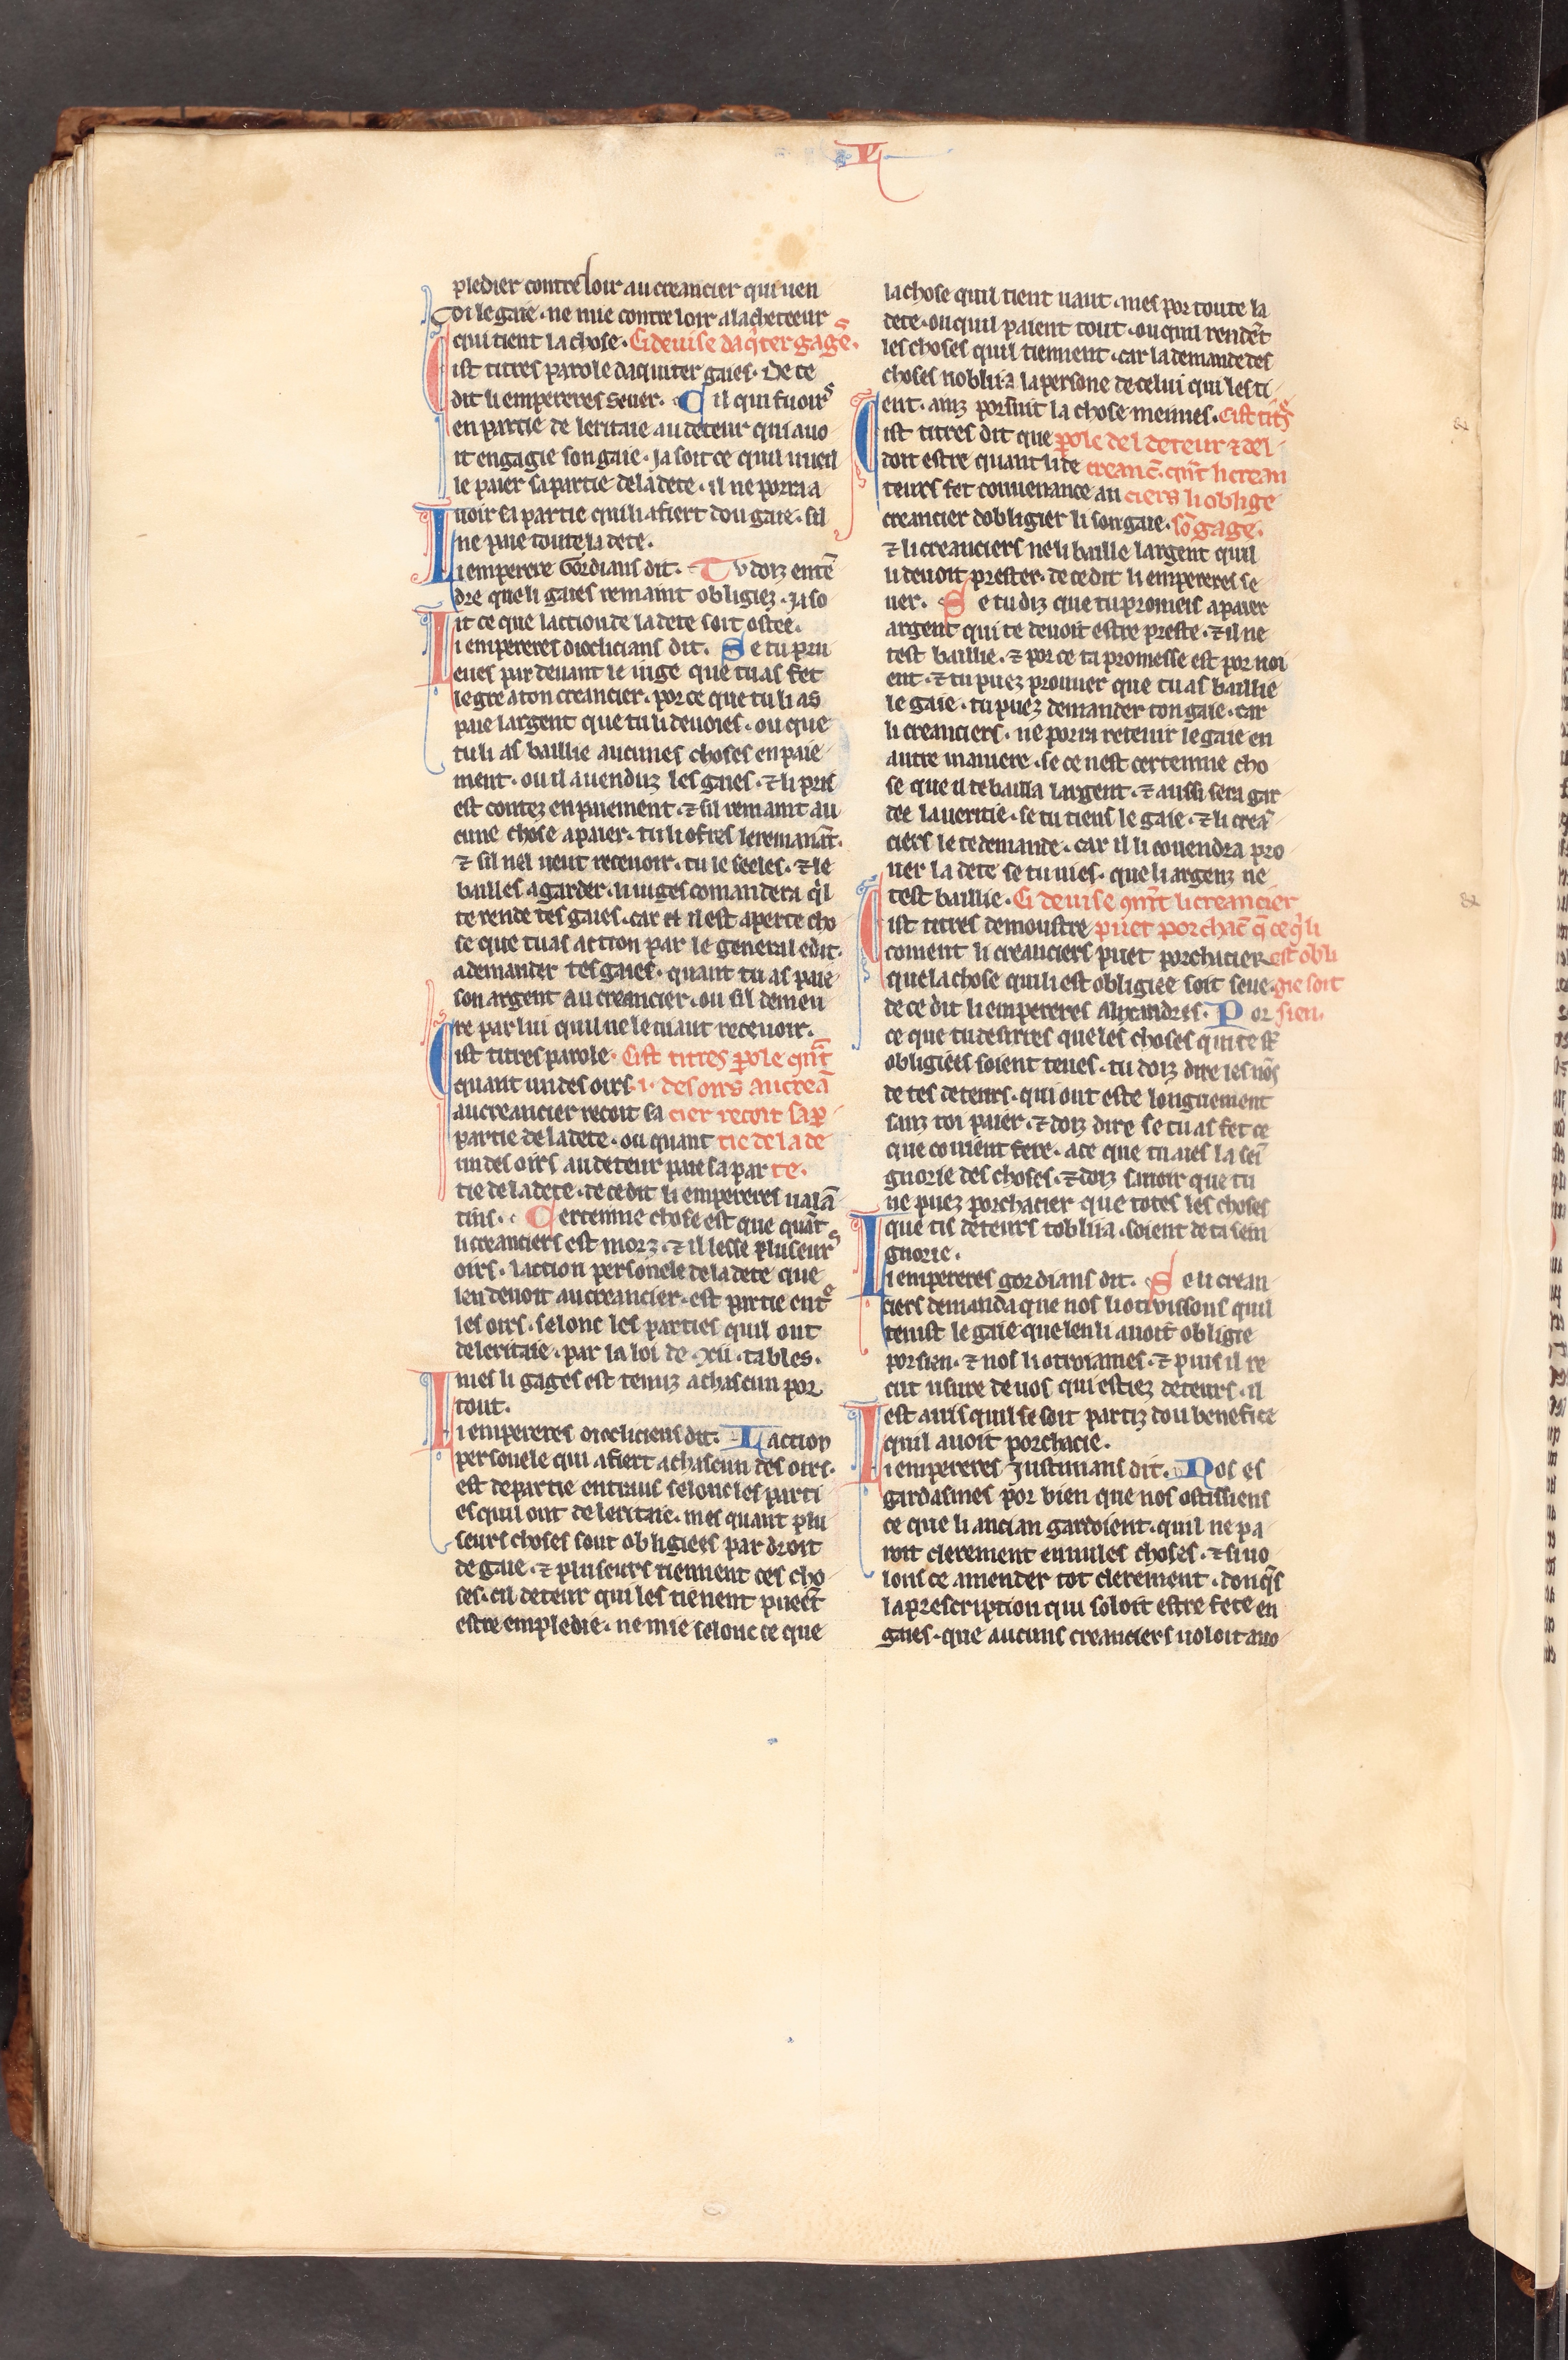 pledier contre loir au creancier qui uen
di le gaie · ne mie contre loir a lacheteeur
qui tient la chose · Ci deuise daq̇ter gages̄ ·
Cist titres parole daquiter gaies · De ce
dit li empereres seuer · Cil qui fu oirs
en partie de leritaie au deteur qui auo
it engagie son gaie · ja soit ce quil uueil
le paier sa partie de la dete · il ne porra a
uoir sa partie quili afiert dou gaie · sil
ne paie toute la dete ·
Li emperere Gordians dit · Tu doiz entē
dre que li gaies remaint obligiez · ja so
it ce que laction de la dete soit ostee ·
Li empereres dioclicians dit · Se tu pru
eues par deuant le iuge que tu as fet
le gre a ton creancier · por ce que tu li as
paie largent que tu li deuoies · ou que
tu li as baillie aucunes choses en paie
ment · ou il a uenduz les gaies · ⁊ li pris
est contez en paiement · ⁊ sil remaint au
cune chose a paier · tu li ofres le remanāt ·
⁊ sil nel ueut receuoir · tu le seeles · ⁊ le
bailles a garder · li iuges comandera q̇l
te rende tes gaies · car il est aperte cho
se que tu as action par le general edit ·
a demander tes gaies · quant tu as paie
son argent au creancier · ou sil demeu
re par lui quil ne le uaut receuoir ·
Cist titres parole · Cist titres ꝑole qn̄t
quant un des oirs · i · des oirs au creā
au creancier recoit sa cier recoit sa ꝑ
partie de la dete · ou quant tie de la de
un des oirs au deteur paie sa par te ·
tie de la dete · de ce dit li empereres ualā
tins · Certenne chose est que quāt
li creanciers est morz · ⁊ il lesse pluseurs
oirs · laction personele de la dete que
len deuoit au creancier · est partie entre
les oirs · selonc les parties quil ont
de leritaie · par la loi de · xii · tables ·
mes li gages est tenuz a chascun por
tout ·
Li empereres diocliciens dit · Laction
personele qui afiert a chascun des oirs ·
est departie entraus selonc les parti
es quil ont de leritaie · mes quant plu
seurs choses sont obligiees par droit
de gaie · ⁊ pluseurs tiennent ces cho
ses · cil deteur qui les tienent pueēt
estre empledie · ne mie selonc ce que
la chose quil tient uaut · mes por toute la
dete · ou quil paient tout · ou quil rendēt
les choses quil tiennent · car la demande des
choses noblija la persone de celui qui les ti
ent · ainz porsuit la chose meimes · Cist titrˢ
Cist titres dit que ꝑole del deteur ⁊ del
doit estre quant li de creanc̄ · qn̄t li crean
teurs fet conuenance au ciers li oblige
creancier dobligier li son gaie · sō gage ·
⁊ li creanciers ne li baille largent quil
li deuoit prester · de ce dit li empereres se
uer · Se tu diz que tu promeis a paier
argent qui te deuoit estre preste · ⁊ il ne
test baillie · ⁊ por ce ta promesse est por noi
ent · ⁊ tu puez prouuer que tu as baillie
le gaie · tu puez demander ton gaie · car
li creanciers · ne porra retenir le gaie en
autre maniere · se ce nest certenne cho
se que il te bailla largent · ⁊ aussi sera gar
dee la ueritie · se tu tiens le gaie · ⁊ li creā
ciers le te demande · car il li couendra pro
uer la dete se tu nies · que li argenz ne
test baillie · Ci deuise qn̄t li creancier
Cist titres demoustre puet porchac̄ q̄ ce q̇ li
coment li creanciers puet porchacier est obli
que la chose quili est obligiee soit seue · gie soit
de ce dit li empereres alixandres · Por sien ·
ce que tu desirres que les choses qui te sō
obligiees soient teues · tu doiz dire les nōs
de tes deteurs · qui ont este longuement
sanz toi paier · ⁊ doiz dire se tu as fet ce
que couient fere · a ce que tu aies la sei
gnorie des choses · ⁊ doiz sauoir que tu
ne puez porchacier que totes les choses
que tis deteurs toblija · soient de ta sein
gnorie ·
Li empereres gordians dit · Se li crean
ciers demanda que nos li otroissons quil
tenist le gaie que len li auoit obligie
por sien · ⁊ nos li otroiames · ⁊ puis il re
cut usure de uos qui estiez deteurs · il
est auis quil se soit partiz dou benefice
quil auoit porchacie ·
Li empereres justinians dit · Nos es
gardasmes por bien que nos ostissiens
ce que li ancian gardoient · quil ne pa
roit clerement en nules choses · ⁊ si uo
lons ce amender tot clerement · donq̄s
la prescription qui soloit estre fete en
gaies · que aucuns creanciers uoloit auo